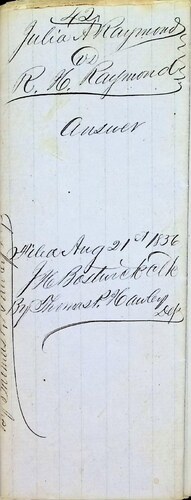 42
Julia A Raymond
vs
R. H. Raymond
Answer
Filed Aug 21st 1856
J H Bostwick clk
By Thomas P. Hawley
Dep